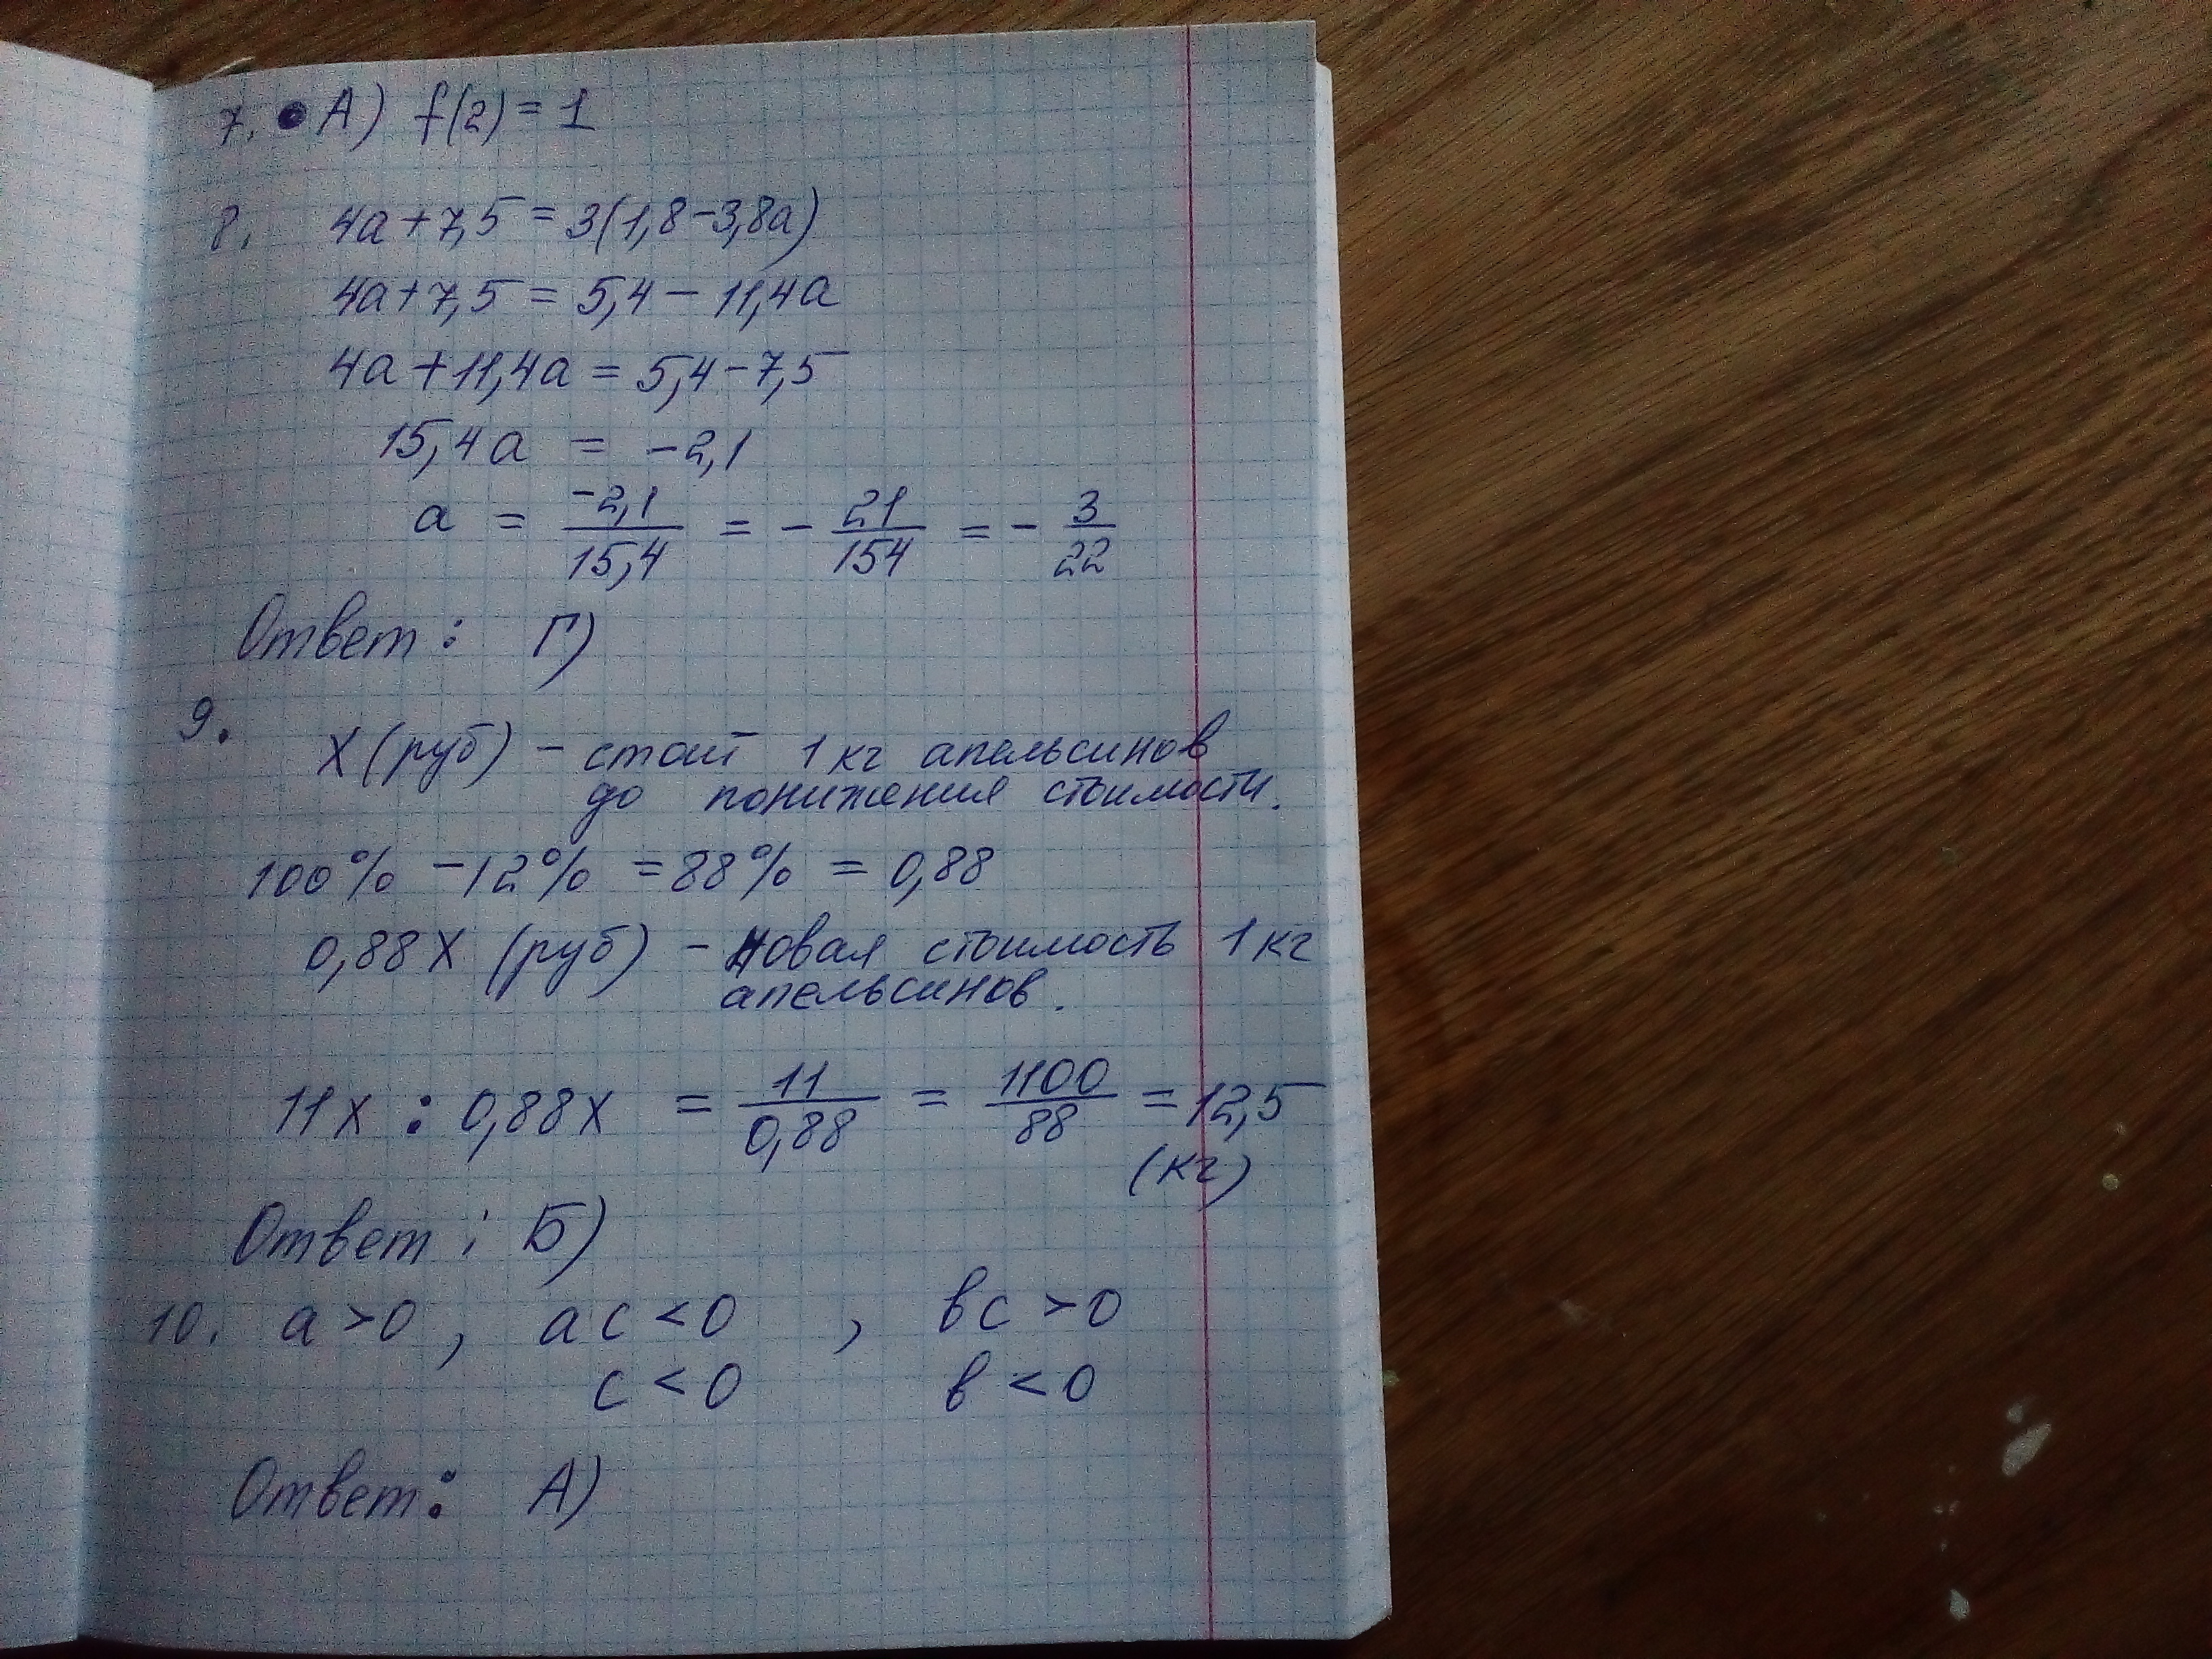 7. А) f(2) = 1
8. 4a + 7,5 = 3(1,8 - 3,8a)
4a + 7,5 = 5,4 - 11,4a
4a + 11,4a = 5,4 - 7,5
15,4a = -2,1
a = -2,1/15,4 = - 21/154 = - 3/22
Ответ: Г)
9. X (руб) - стоит 1 кг апельсинов
до понижения стоимости.
100% - 12% = 88% = 0,88
0,88X (руб) - новая стоимость 1 кг
апельсинов.
11x : 0,88x = 11/0,88 = 1100/88 = 12,5
(кг)
Ответ: Б)
10. a > 0, ac < 0, bc > 0
c < 0 b < 0
Ответ: А)